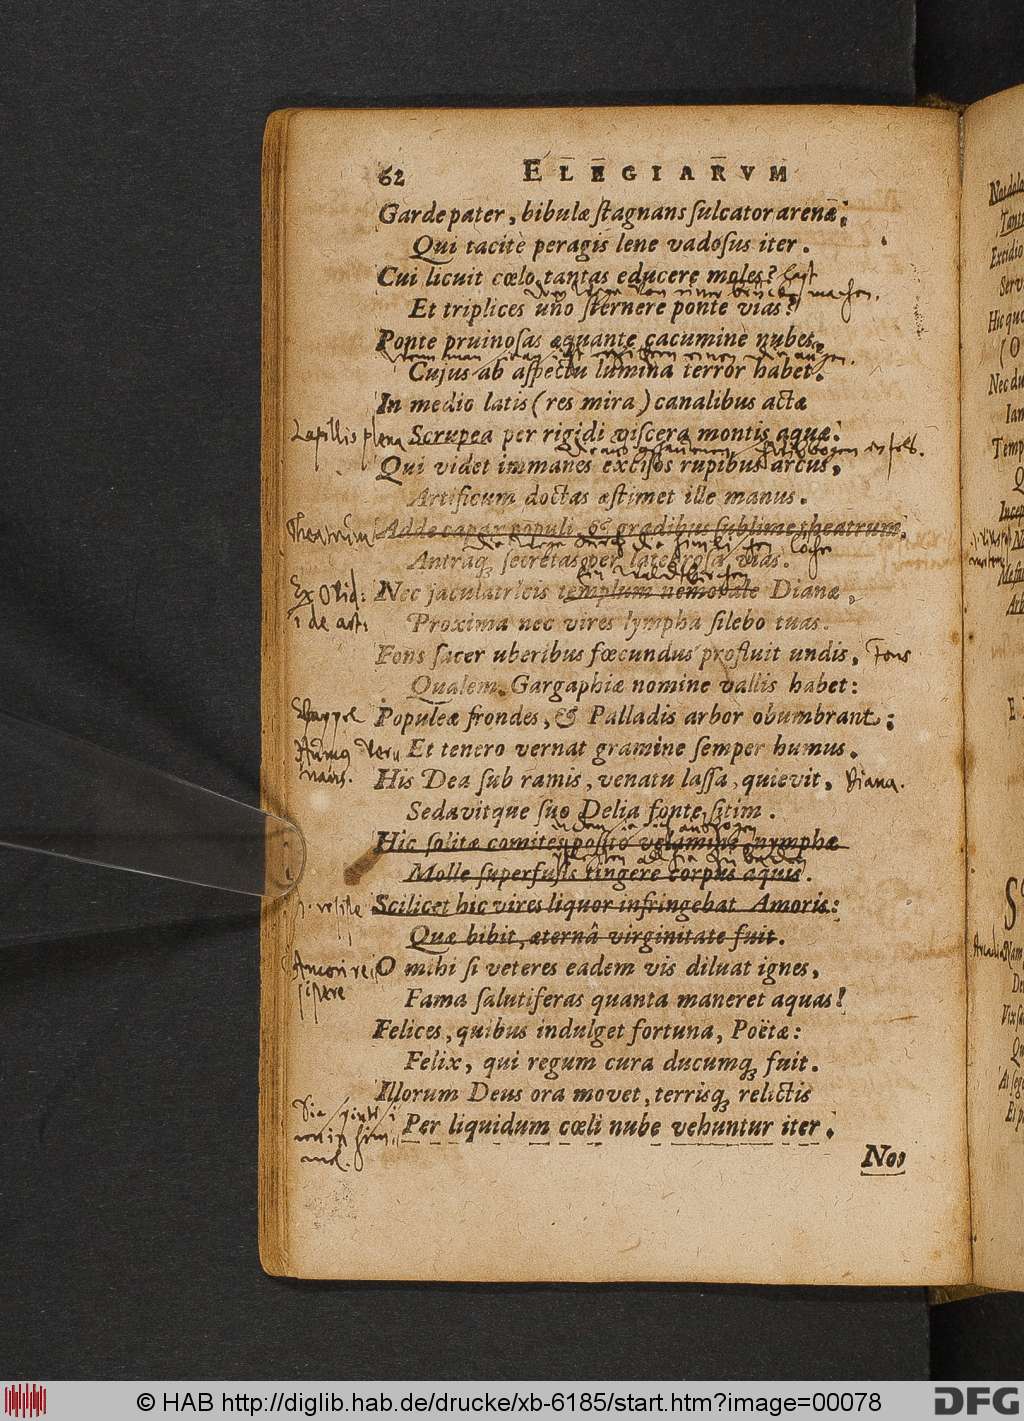 62 ELEGIARVM
Garde pater, bibulæ stagnans sulcator arenæ;
Qui tacitè peragis lene vadosus iter.
Cui licuit cœlo tantas educere moles?
Et triplices uno sternere ponte vias?
machen.
Ponte pruinosas æquante cacumine nubes,
Cujus ab aspectu lumina terror habet.
In medio latis (res mira) canalibus actæ
Lapillis plena Scrupea per rigidi viscera montis aquæ:
Qui videt immanes excisos rupibus arcus,
Artificum doctas æstimet ille manus.
Theatrum Adde capax populi, & gradibus sublime theatrum,
Antraq; secretas per latebrosa vias.
Ex Ovid: Nec jaculatricis templum nemorale Dianæ,
1 de art: Proxima nec vires lympha silebo tuas.
Fons sacer uberibus fœcundus profluit undis, Fons
Qualem Gargaphiæ nomine vallis habet:
Populeæ frondes, & Palladis arbor obumbrant;
Humus Et tenero vernat gramine semper humus.
His Dea sub ramis, venatu lassa, quievit, Diana.
Sedavitque suo Delia fonte sitim.
Hic solitæ comites posito velamine nymphæ
Molle superfusis tingere corpus aquis.
Scilicet hic vires liquor infringebat Amoris:
Quæ bibit, æternâ virginitate fuit.
Amori re O mihi si veteres eadem vis diluat ignes,
sistere Fama salutiferas quanta maneret aquas!
Felices, quibus indulget fortuna, Poëtæ:
Felix, qui regum cura ducumq; fuit.
Illorum Deus ora movet, terrisq; relictis
Per liquidum cœli nube vehuntur iter.
Nos
© HAB http://diglib.hab.de/drucke/xb-6185/start.htm?image=00078
DFG